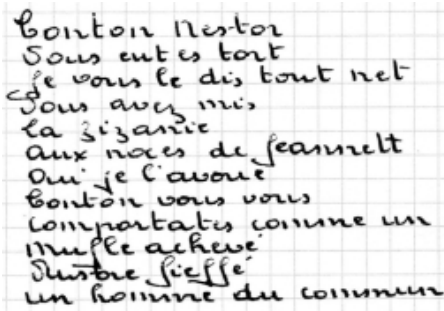 Tonton Nestor
Vous eutes tort
Je vous le dis tout net
Vous avez mis
la zizanie
aux noces de Jeannett
Oui je l'avoue
Tonton vous vous
comportates comme un
mufle achevé
Rustre fieffé
un homme du commun